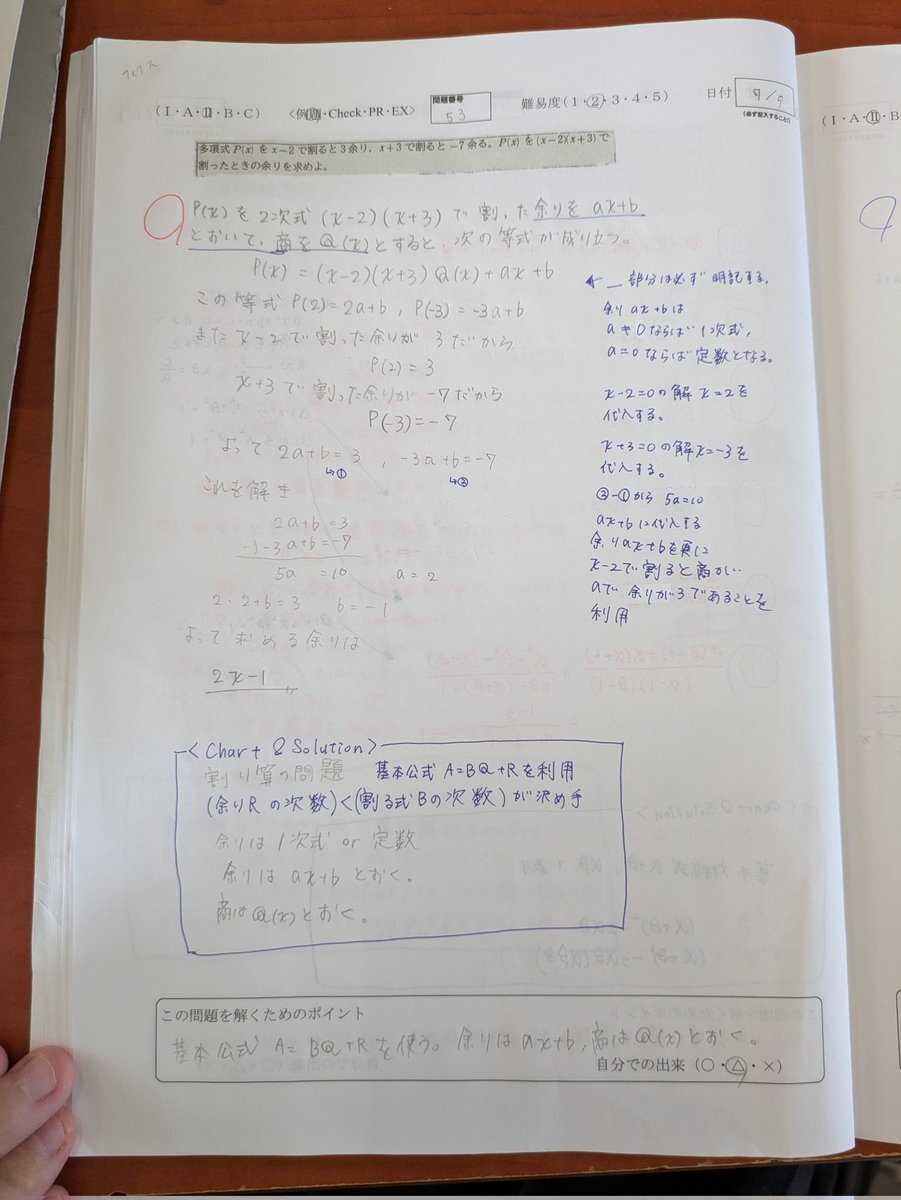 (I・A・II・B・C)
<例題・Check・PR・EX>
問題番号
53
難易度(1・2・3・4・5)
日付
9/9
(必ず記入すること!)
多項式 P(x) を x−2 で割ると3余り, x+3 で割ると −7 余る。P(x) を (x−2)(x+3) で
割ったときの余りを求めよ。
P(x) を 2次式 (x-2)(x+3) で 割った余りを ax+b
とおいて, 商を Q(x)とすると, 次の等式が成り立つ。
P(x) = (x-2)(x+3)Q(x)+ax+b
この等式 P(2)=2a+b , P(-3)=-3a+b
また x-2 で 割った余りが 3 だから
P(2)=3
x+3 で 割った余りが -7 だから
P(-3)=-7
よって 2a+b=3 , -3a+b=-7
↳① ↳②
これを解き
2a+b=3
-)-3a+b=-7
5a =10 a=2
2・2+b=3 b=-1
よって求める余りは
2x-1
← _ 部分は必ず明記する,
余り ax+b は
a≠0 ならば 1次式,
a=0 ならば定数となる。
x-2=0の解 x=2を
代入する。
x+3=0の解x=-3を
代入する。
②-①から 5a=10
ax+bに代入する
余りax+bを更に
x-2で割ると商がい
aで余りが3であることを
利用
<Chart & Solution>
割り算の問題 基本公式 A=BQ+Rを利用
(余りRの次数)<(割る式Bの次数)が決め手
余りは 1次式 or 定数
余りは ax+b とおく。
商は Q(x)とおく。
この問題を解くためのポイント
基本公式 A=BQ+Rを使う。余りは ax+b, 商は Q(x)とおく。
自分での出来(○・△・×)
(I・A・II・B